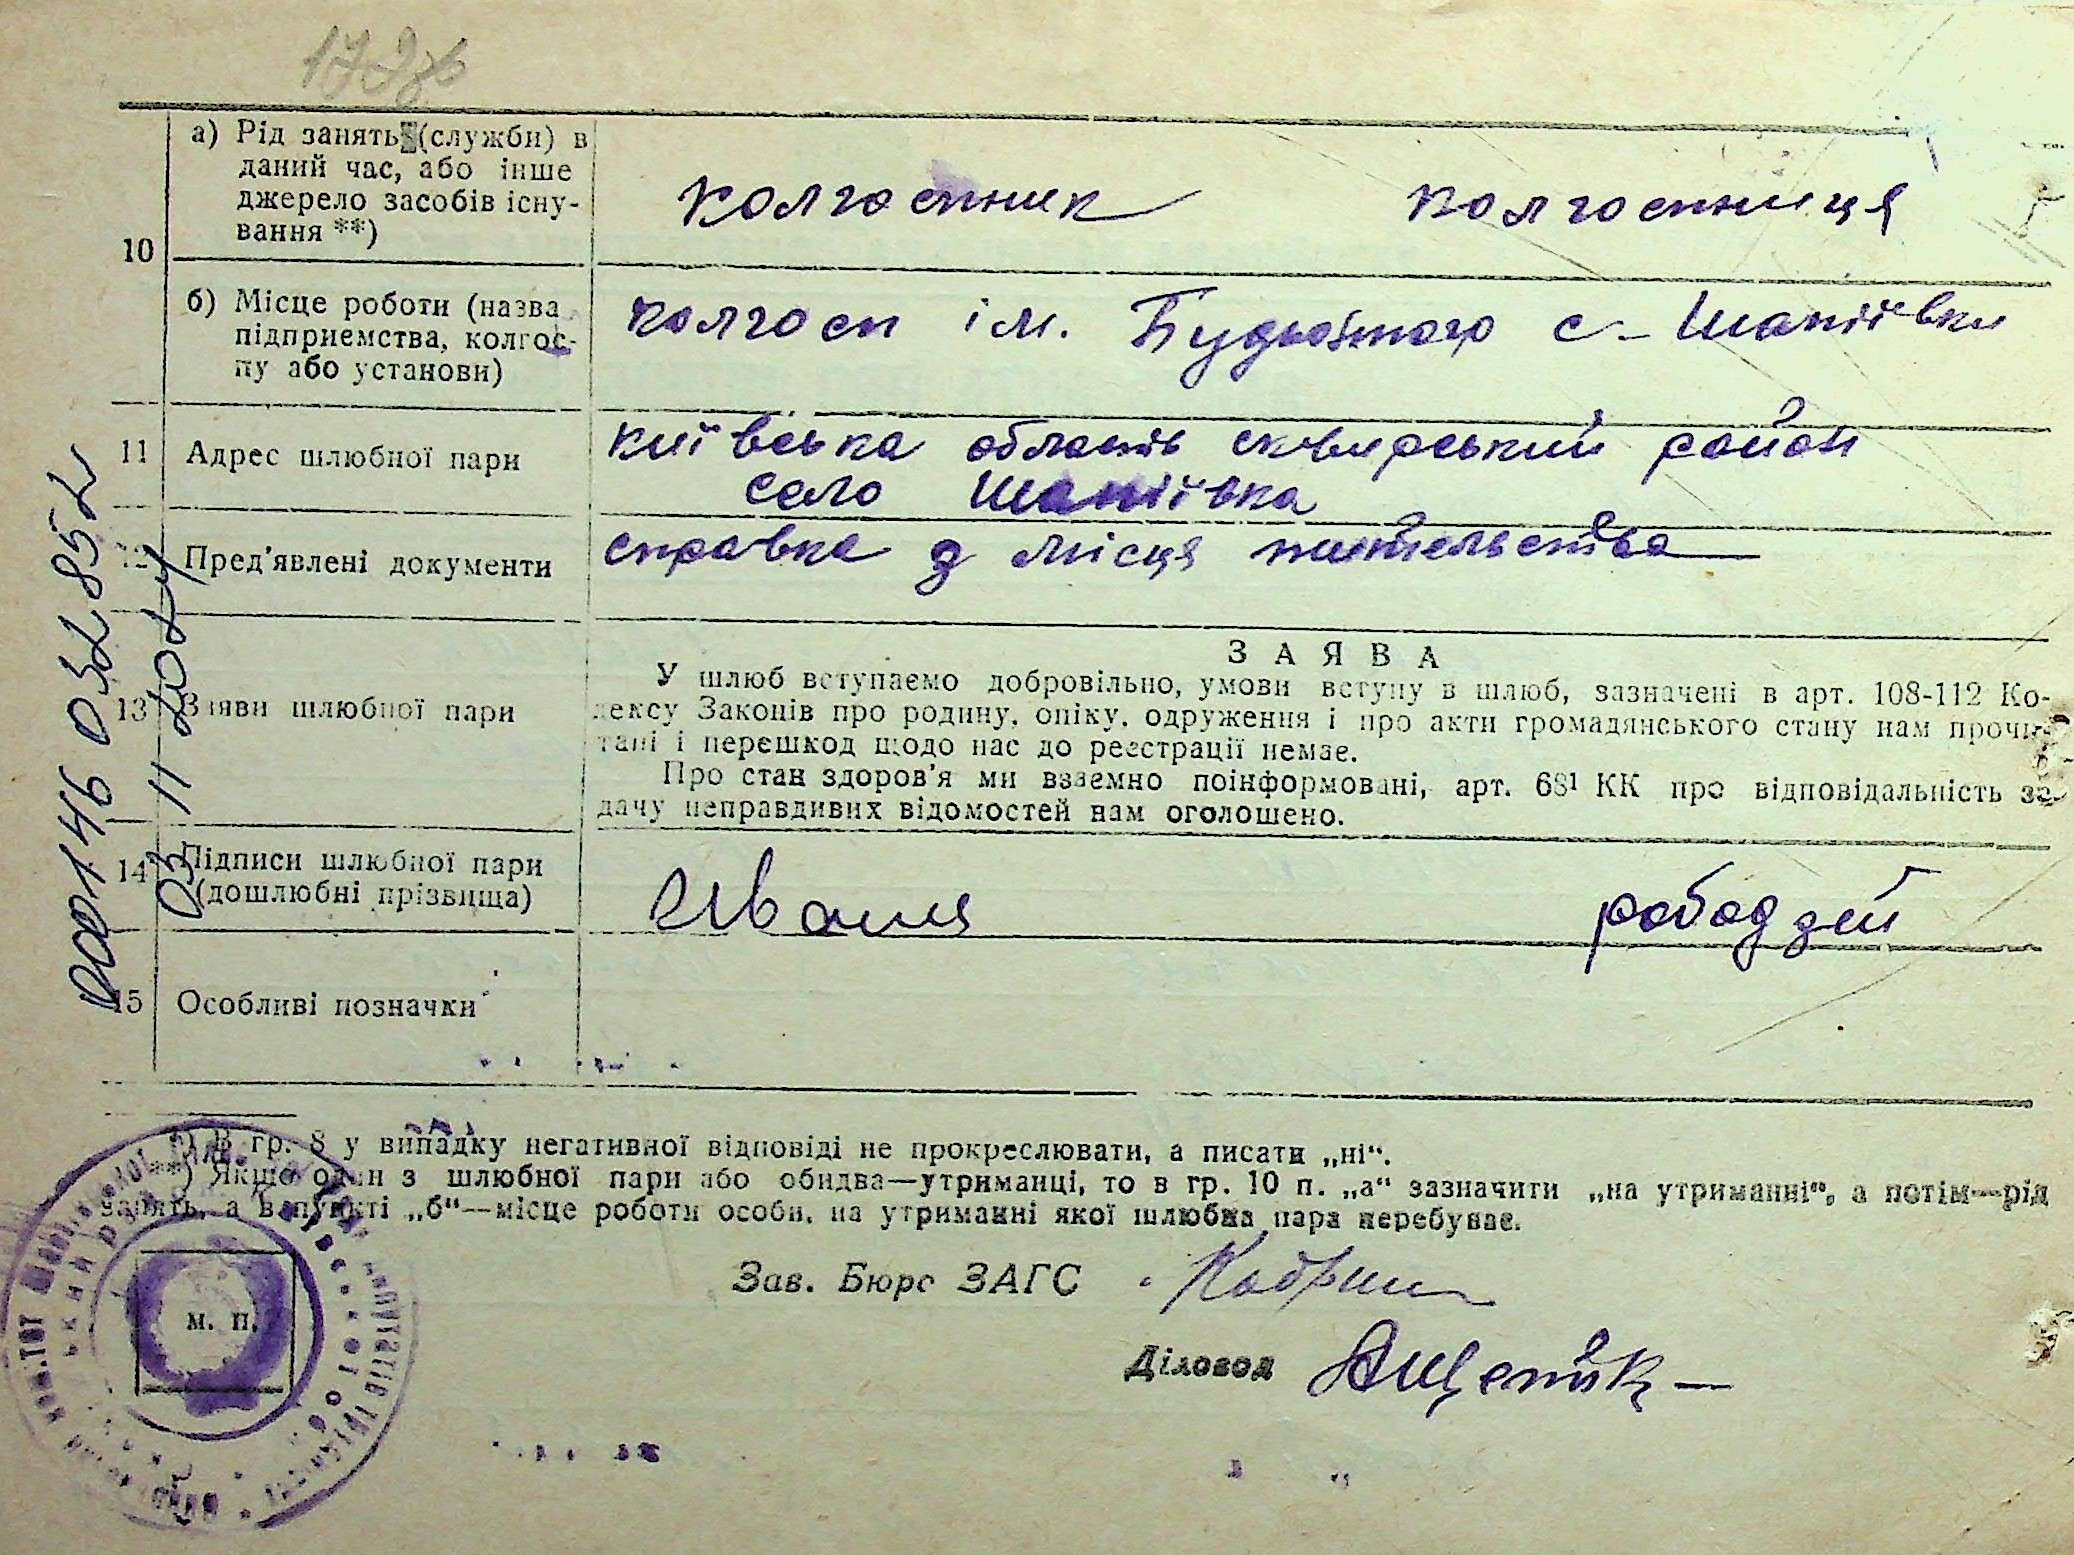 10
а) Рід занять (служби) в
даний час, або інше
джерело засобів існу-
вання **)
колгоспник колгоспниця
б) Місце роботи (назва
підприємства, колгос-
пу або установи)
колгосп ім. Будьоного с- Шапіївки
11 Адрес шлюбної пари
київська область сквирський район
село Шапіївка
12 Пред'явлені документи
справка з місця жительства
13 Заяви шлюбної пари
ЗАЯВА
У шлюб вступаємо добровільно, умови вступу в шлюб, зазначені в арт. 108-112 Ко-
дексу Законів про родину, опіку, одруження і про акти громадянського стану нам прочи-
тані і перешкод щодо нас до реєстрації немає.
Про стан здоров'я ми взаємно поінформовані, арт. 68¹ КК про відповідальність за
дачу неправдивих відомостей нам оголошено.
14 Підписи шлюбної пари
(дошлюбні прізвища)
Іваня рабодзей
15 Особливі позначки
00146 032 852
03 11 2024
*) В гр. 8 у випадку негативної відповіді не прокреслювати, а писати „ні“.
**) Якщо один з шлюбної пари або обидва—утриманці, то в гр. 10 п. „а“ зазначити „на утриманні“, а потім—рід
занять, а в пункті „б“—місце роботи особи, на утриманні якої шлюбна пара перебуває.
Зав. Бюро ЗАГС
Діловод
м. п.